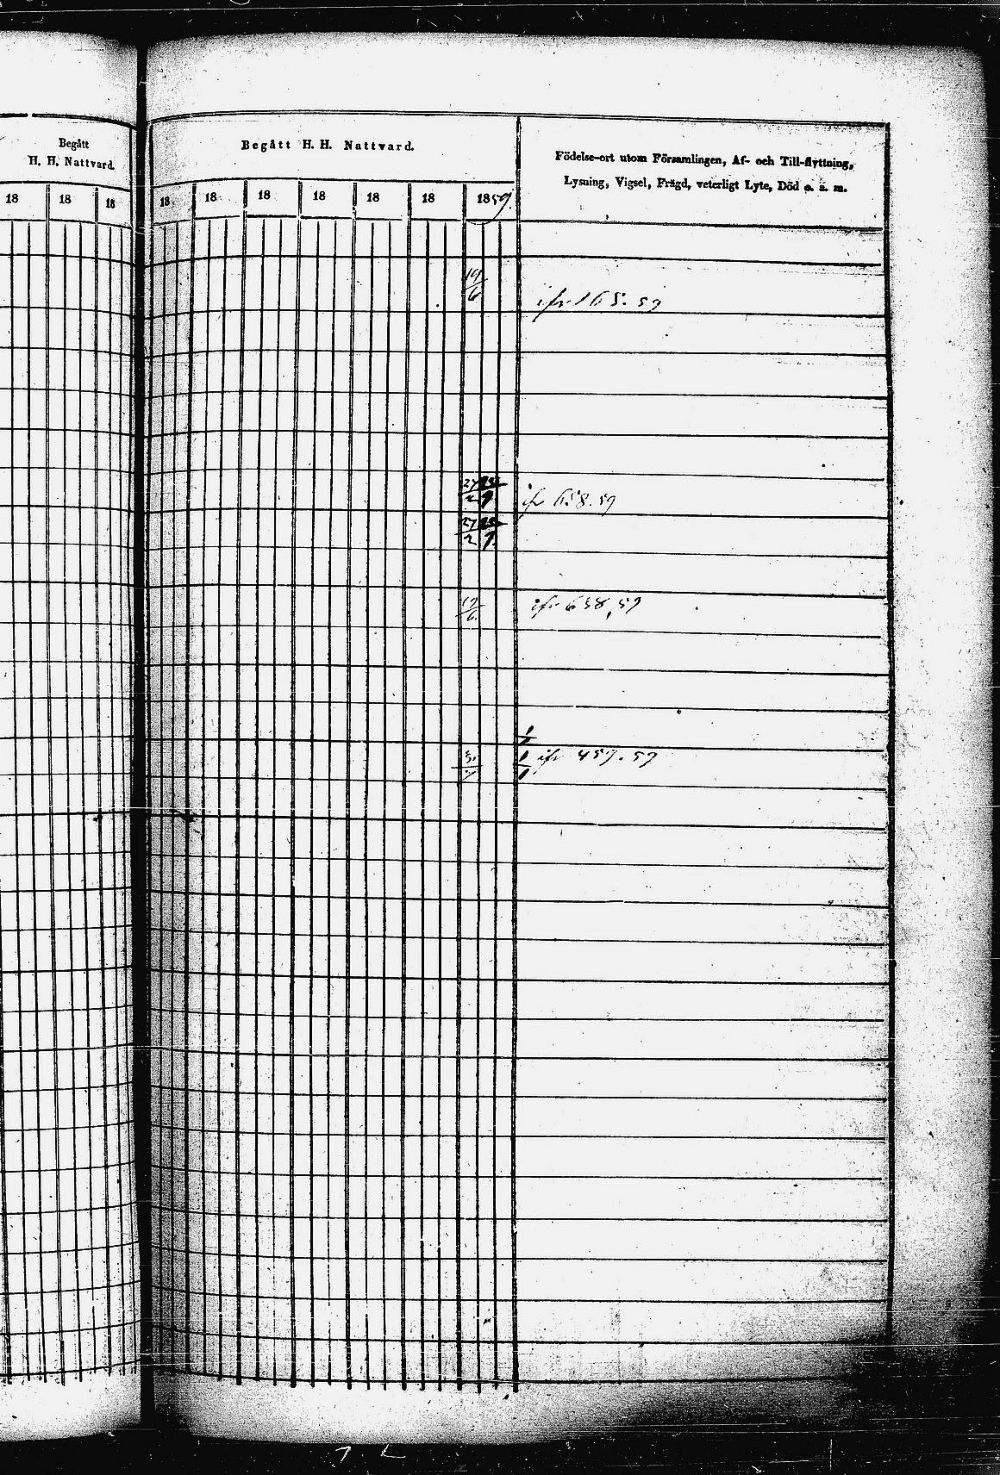 Begått
H. H. Nattvard.
18 18 18
Begått H. H. Nattvard.
18 18 18 18 18 18 1859
Födelse-ort utom Församlingen, Af- och Till-flyttning,
Lysning, Vigsel, Frägd, veterligt Lyte, Död o. s. m.
19/6
ifr 165. 59
27/2
ifr 658. 59
27/2
19/6 ifr 658. 59
ifr 459. 59